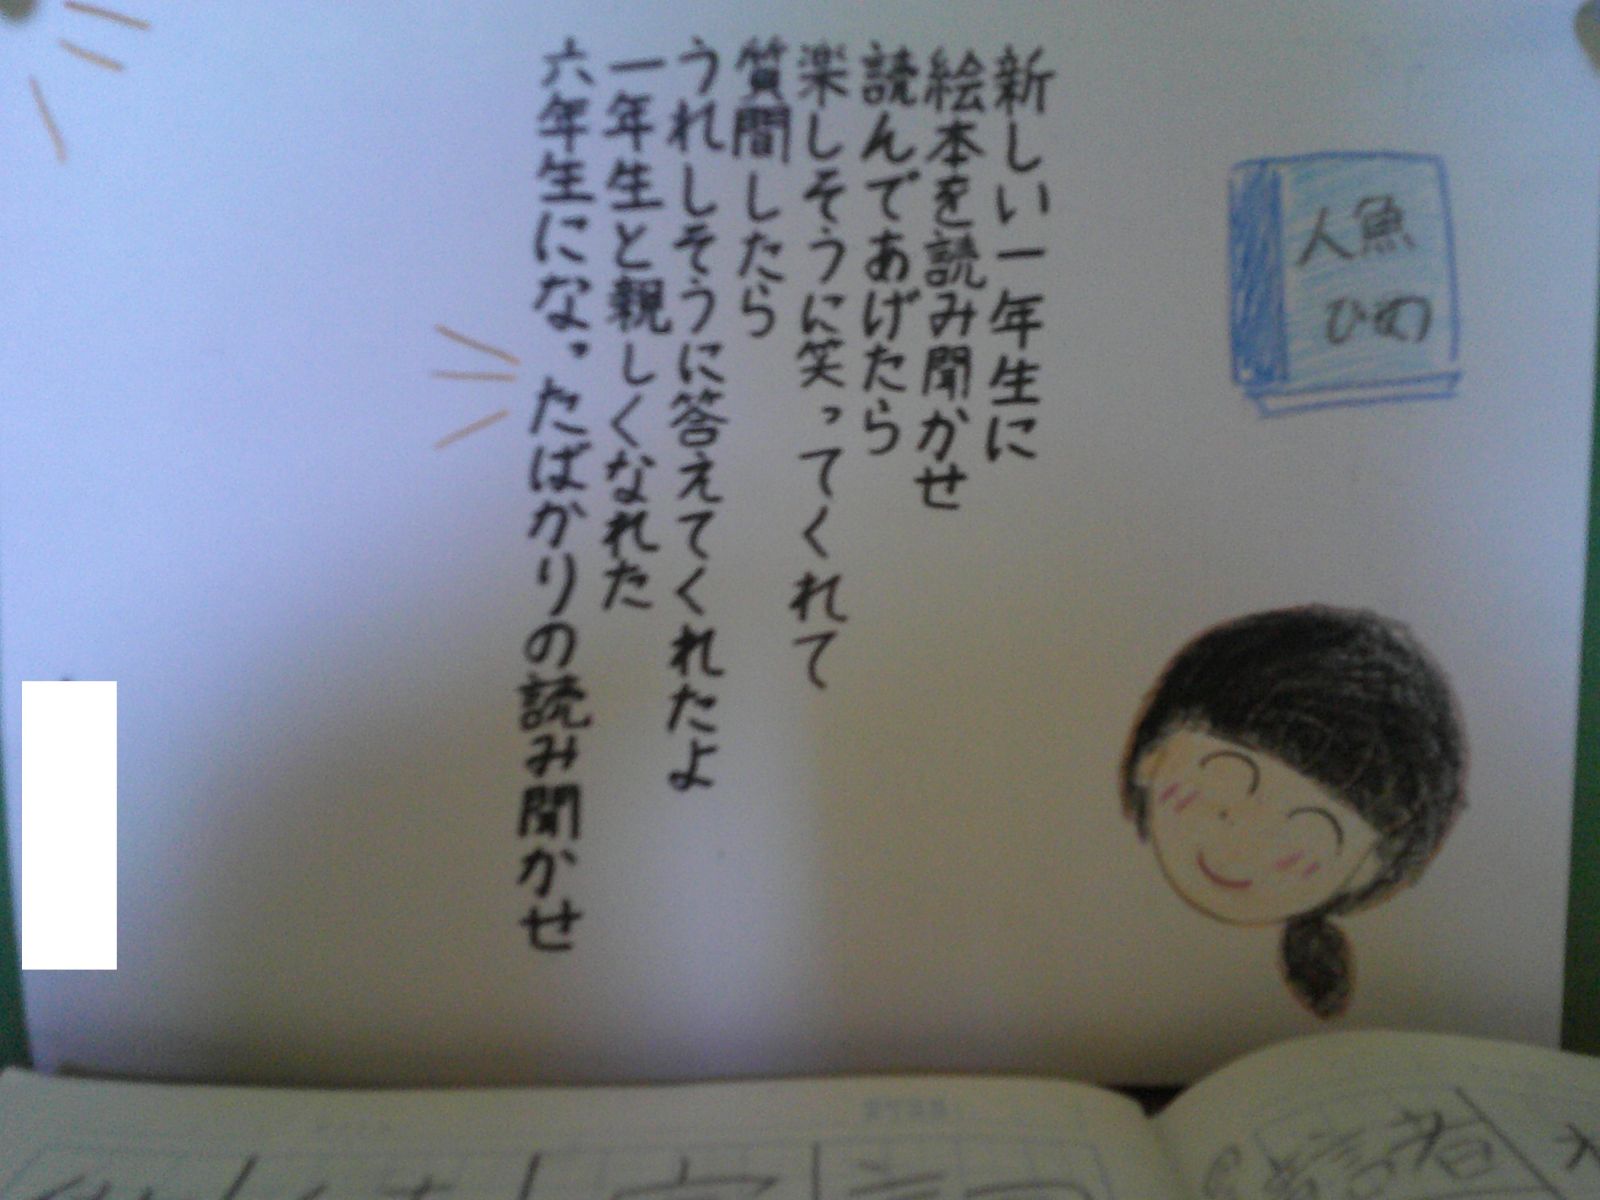 新しい一年生に
絵本を読み聞かせ
読んであげたら
楽しそうに笑ってくれて
質問したら
うれしそうに答えてくれたよ
一年生と親しくなれた
六年生になったばかりの読み聞かせ
人魚
ひめ
読者